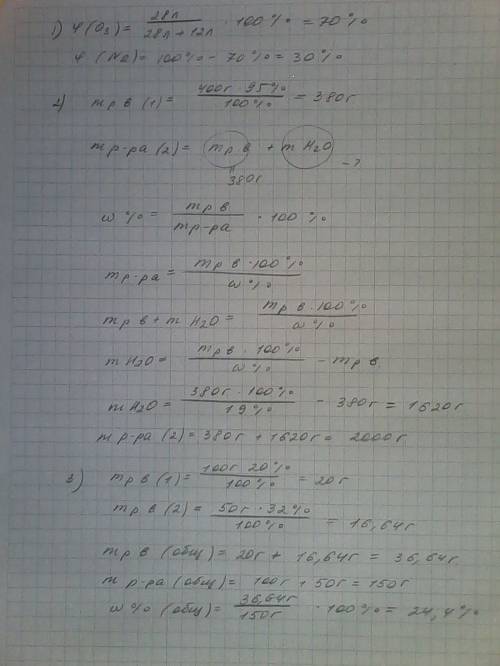 1) φ(O₃) = 28л / 28л + 12л · 100% = 70%
φ(N₂) = 100% - 70% = 30%
2) mрв(1) = 400г · 95% / 100% = 380г
mр-ра(2) = mрв + mH₂O - ?
380г
ω% = mрв / mр-ра · 100%
mр-ра = mрв · 100% / ω%
mрв + mH₂O = mрв · 100% / ω%
mH₂O = mрв · 100% / ω% - mрв
mH₂O = 380г · 100% / 19% - 380г = 1620г
mр-ра(2) = 380г + 1620г = 2000г
3) mрв(1) = 100г · 20% / 100% = 20г
mрв(2) = 50г · 32% / 100% = 16,64г
mрв(общ) = 20г + 16,64г = 36,64г
mр-ра(общ) = 100г + 50г = 150г
ω%(общ) = 36,64г / 150г · 100% = 24,4%